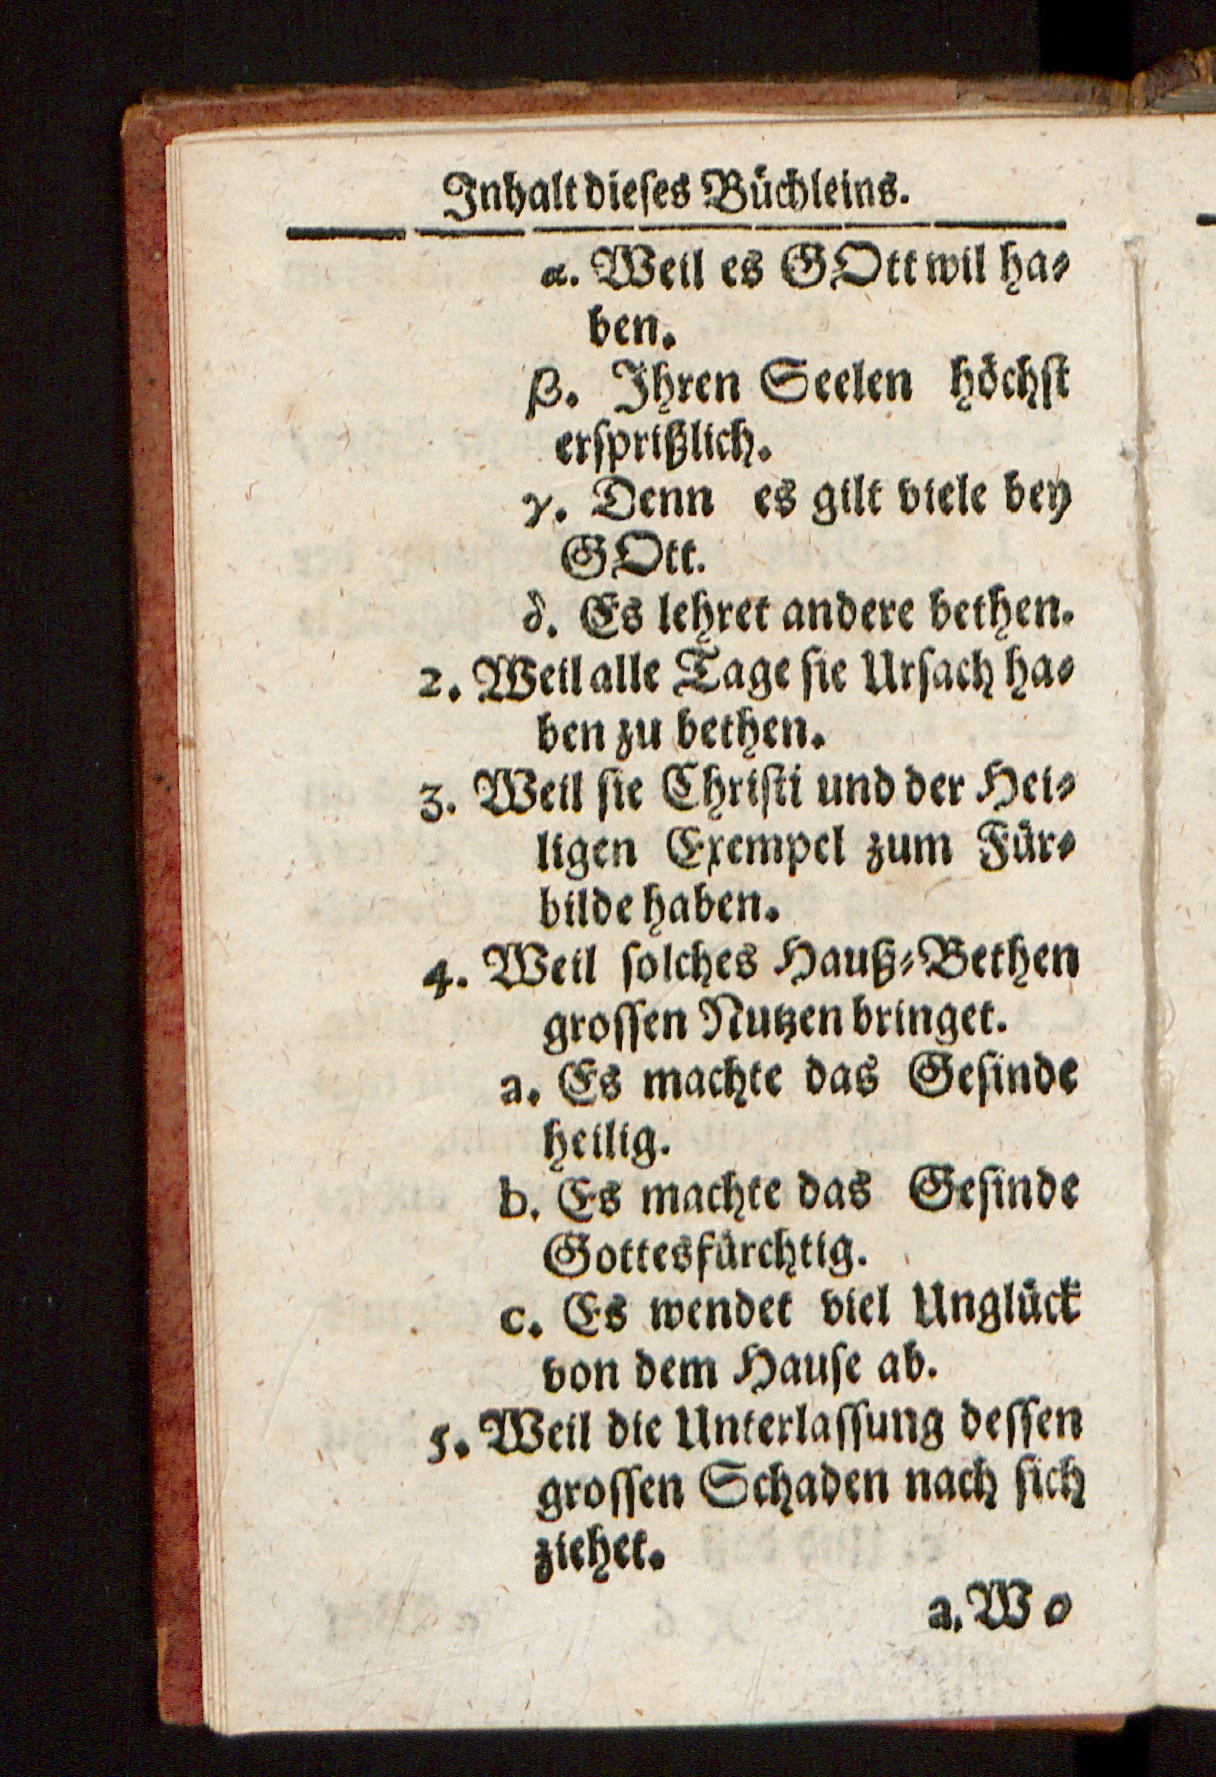 Inhalt dieſes Büchleins.
α. Weil es GOtt wil ha⸗
ben.
β. Ihren Seelen höchſt
erſprißlich.
γ. Denn es gilt viele bey
GOtt.
δ. Es lehret andere bethen.
2. Weil alle Tage ſie Urſach ha⸗
ben zu bethen.
3. Weil ſie Chriſti und der Hei⸗
ligen Exempel zum Für⸗
bilde haben.
4. Weil ſolches Hauß⸗Bethen
groſſen Nutzen bringet.
a. Es machte das Geſinde
heilig.
b. Es machte das Geſinde
Gottesfürchtig.
c. Es wendet viel Unglück
von dem Hauſe ab.
5. Weil die Unterlaſſung deſſen
groſſen Schaden nach ſich
ziehet.
a. Wo